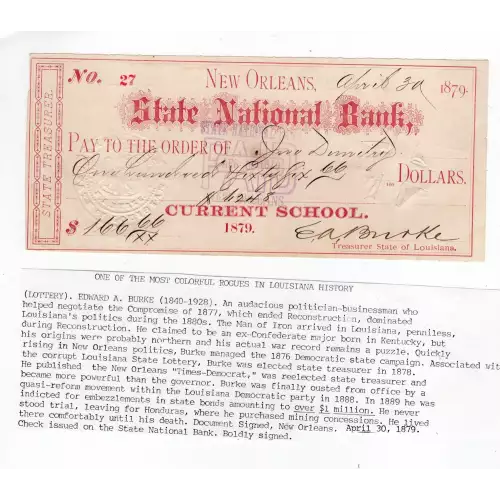 No. 27 NEW ORLEANS, April 30 1879.
STATE TREASURER.
State National Bank,
PAY TO THE ORDER OF Jno
One hundred Sixty Six 66/100 DOLLARS.
CURRENT SCHOOL.
$ 166 66/xx 1879. EABurke
Treasurer State of Louisiana.
ONE OF THE MOST COLORFUL ROGUES IN LOUISIANA HISTORY
(LOTTERY). EDWARD A. BURKE (1840-1928). An audacious politician-businessman who
helped negotiate the Compromise of 1877, which ended Reconstruction, dominated
Louisiana's politics during the 1880s. The Man of Iron arrived in Louisiana, penniless,
during Reconstruction. He claimed to be an ex-Confederate major born in Kentucky, but
his origins were probably northern and his actual war record remains a puzzle. Quickly
rising in New Orleans politics, Burke managed the 1876 Democratic state campaign. Associated wit
the corrupt Louisiana State Lottery, Burke was elected state treasurer in 1878.
He published the New Orleans "Times-Democrat," was reelected state treasurer and
became more powerful than the governor. Burke was finally ousted from office by a
quasi-reform movement within the Louisiana Democratic party in 1888. In 1889 he was
indicted for embezzlements in state bonds amounting to over $1 million. He never
stood trial, leaving for Honduras, where he purchased mining concessions. He lived
there comfortably until his death. Document Signed, New Orleans. April 30, 1879.
Check issued on the State National Bank. Boldly signed.